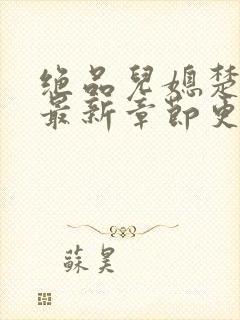 绝品兒媳楚
最新章節更
蘇昊